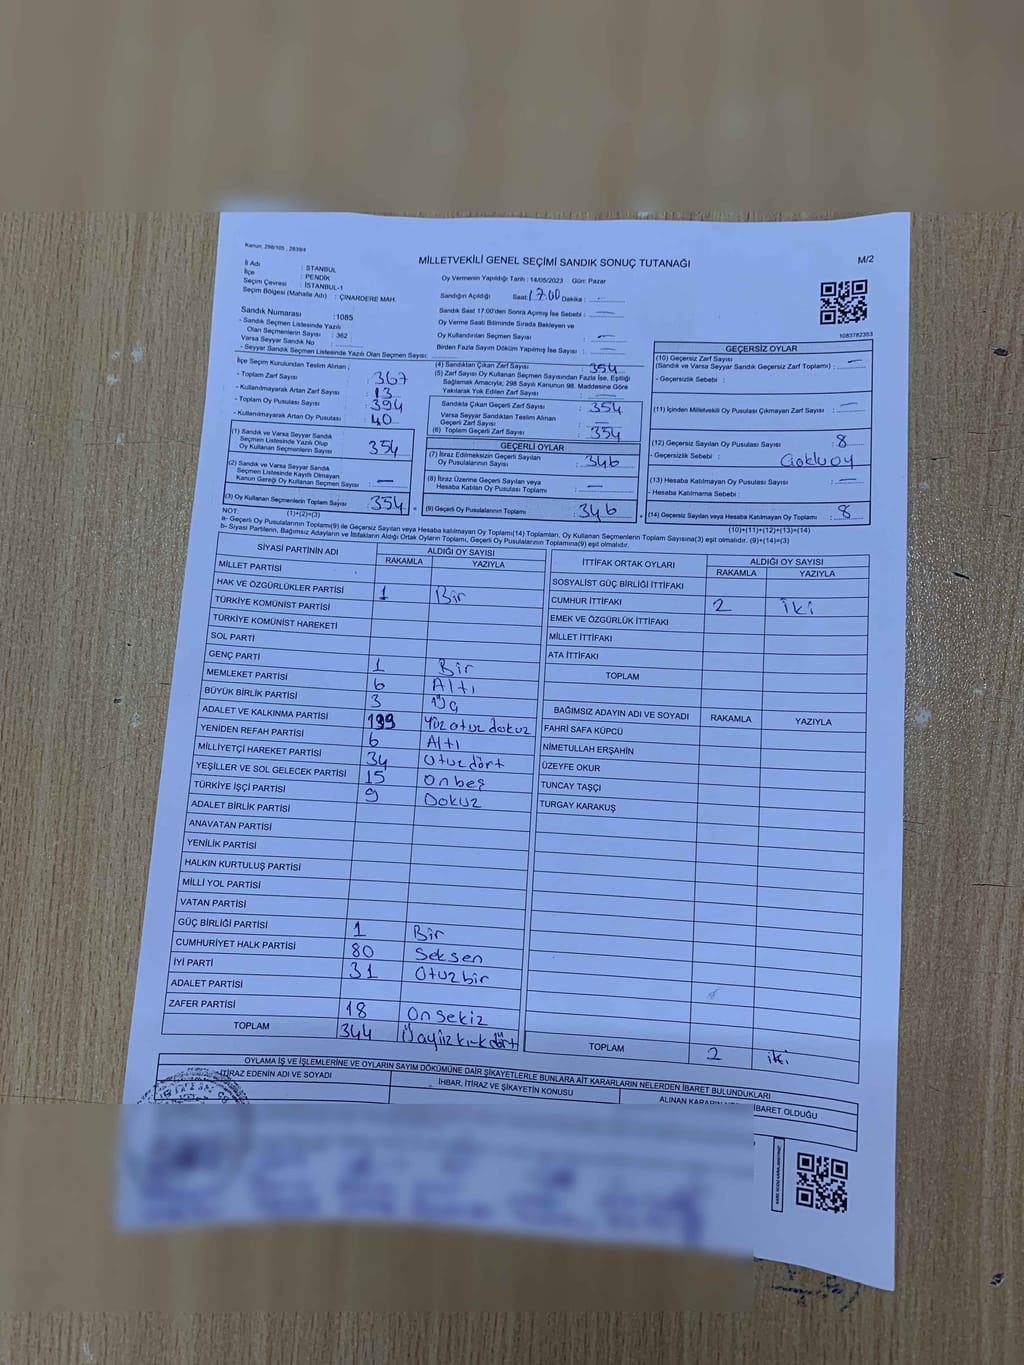 Kanun; 298/105 , 2839/4
MİLLETVEKİLİ GENEL SEÇİMİ SANDIK SONUÇ TUTANAĞI
M/2
İl Adı : İSTANBUL
İlçe : PENDİK
Seçim Çevresi : İSTANBUL-1
Seçim Bölgesi (Mahalle Adı) : ÇINARDERE MAH.
Sandık Numarası :1085
- Sandık Seçmen Listesinde Yazılı
Olan Seçmenlerin Sayısı : 362
Varsa Seyyar Sandık No :
- Seyyar Sandık Seçmen Listesinde Yazılı Olan Seçmen Sayısı:
Oy Vermenin Yapıldığı Tarih : 14/05/2023 Gün: Pazar
Sandığın Açıldığı Saat: 17:00 Dakika : -
Sandık Saat 17:00'den Sonra Açılmış İse Sebebi : —
Oy Verme Saati Bitiminde Sırada Bekleyen ve
Oy Kullandırılan Seçmen Sayısı : —
Birden Fazla Sayım Döküm Yapılmış İse Sayısı : —
1083782353
İlçe Seçim Kurulundan Teslim Alınan ;
- Toplam Zarf Sayısı : 367
- Kullanılmayarak Artan Zarf Sayısı : 13
- Toplam Oy Pusulası Sayısı : 394
- Kullanılmayarak Artan Oy Pusulası : 40
(1) Sandık ve Varsa Seyyar Sandık
Seçmen Listesinde Yazılı Olup
Oy Kullanan Seçmenlerin Sayısı : 354
(2) Sandık ve Varsa Seyyar Sandık
Seçmen Listesinde Kayıtlı Olmayan
Kanun Gereği Oy Kullanan Seçmen Sayısı : —
(3) Oy Kullanan Seçmenlerin Toplam Sayısı : 354
(1)+(2)=(3)
(4) Sandıktan Çıkan Zarf Sayısı : 354
(5) Zarf Sayısı Oy Kullanan Seçmen Sayısından Fazla İse, Eşitliği
Sağlamak Amacıyla; 298 Sayılı Kanunun 98. Maddesine Göre
Yakılarak Yok Edilen Zarf Sayısı : —
Sandıkta Çıkan Geçerli Zarf Sayısı : 354
Varsa Seyyar Sandıktan Teslim Alınan
Geçerli Zarf Sayısı : —
(6) Toplam Geçerli Zarf Sayısı : 354
GEÇERLİ OYLAR
(7) İtiraz Edilmeksizin Geçerli Sayılan
Oy Pusulalarının Sayısı : 346
(8) İtiraz Üzerine Geçerli Sayılan veya
Hesaba Katılan Oy Pusulası Toplamı : —
(9) Geçerli Oy Pusulalarının Toplamı : 346
GEÇERSİZ OYLAR
(10) Geçersiz Zarf Sayısı
(Sandık ve Varsa Seyyar Sandık Geçersiz Zarf Toplamı) : —
- Geçersizlik Sebebi :
(11) İçinden Milletvekili Oy Pusulası Çıkmayan Zarf Sayısı : —
(12) Geçersiz Sayılan Oy Pusulası Sayısı : 8
- Geçersizlik Sebebi :
(13) Hesaba Katılmayan Oy Pusulası Sayısı : —
- Hesaba Katılmama Sebebi :
(14) Geçersiz Sayılan veya Hesaba Katılmayan Oy Toplamı : 8
(10)+(11)+(12)+(13)=(14)
NOT:
a- Geçerli Oy Pusulalarının Toplamı(9) ile Geçersiz Sayılan veya Hesaba katılmayan Oy Toplamı(14) Toplamları, Oy Kullanan Seçmenlerin Toplam Sayısına(3) eşit olmalıdır. (9)+(14)=(3)
b- Siyasi Partilerin, Bağımsız Adayların ve İttifakların Aldığı Ortak Oyların Toplamı, Geçerli Oy Pusulalarının Toplamına(9) eşit olmalıdır.
SİYASİ PARTİNİN ADI
ALDIĞI OY SAYISI
RAKAMLA YAZIYLA
MİLLET PARTİSİ
HAK VE ÖZGÜRLÜKLER PARTİSİ 1 Bir
TÜRKİYE KOMÜNİST PARTİSİ
TÜRKİYE KOMÜNİST HAREKETİ
SOL PARTİ
GENÇ PARTİ 1 Bir
MEMLEKET PARTİSİ 6 Altı
BÜYÜK BİRLİK PARTİSİ 3 Üç
ADALET VE KALKINMA PARTİSİ 139 Yüz otuz dokuz
YENİDEN REFAH PARTİSİ 6 Altı
MİLLİYETÇİ HAREKET PARTİSİ 34 Otuz dört
YEŞİLLER VE SOL GELECEK PARTİSİ 15 On beş
TÜRKİYE İŞÇİ PARTİSİ 9 Dokuz
ADALET BİRLİK PARTİSİ
ANAVATAN PARTİSİ
YENİLİK PARTİSİ
HALKIN KURTULUŞ PARTİSİ
MİLLİ YOL PARTİSİ
VATAN PARTİSİ
GÜÇ BİRLİĞİ PARTİSİ 1 Bir
CUMHURİYET HALK PARTİSİ 80 Seksen
İYİ PARTİ 31 Otuz bir
ADALET PARTİSİ
ZAFER PARTİSİ 18 On sekiz
TOPLAM 344 Üçyüz kırk dört
İTTİFAK ORTAK OYLARI
ALDIĞI OY SAYISI
RAKAMLA YAZIYLA
SOSYALİST GÜÇ BİRLİĞİ İTTİFAKI
CUMHUR İTTİFAKI 2 İki
EMEK VE ÖZGÜRLÜK İTTİFAKI
MİLLET İTTİFAKI
ATA İTTİFAKI
TOPLAM
BAĞIMSIZ ADAYIN ADI VE SOYADI RAKAMLA YAZIYLA
FAHRİ SAFA KÜPCÜ
NİMETULLAH ERŞAHİN
ÜZEYFE OKUR
TUNCAY TAŞÇI
TURGAY KARAKUŞ
TOPLAM 2 iki
OYLAMA İŞ VE İŞLEMLERİNE VE OYLARIN SAYIM DÖKÜMÜNE DAİR ŞİKAYETLERLE BUNLARA AİT KARARLARIN NELERDEN İBARET BULUNDUKLARI
İTİRAZ EDENİN ADI VE SOYADI
İHBAR, İTİRAZ VE ŞİKAYETİN KONUSU
ALINAN KARARIN İBARET OLDUĞU